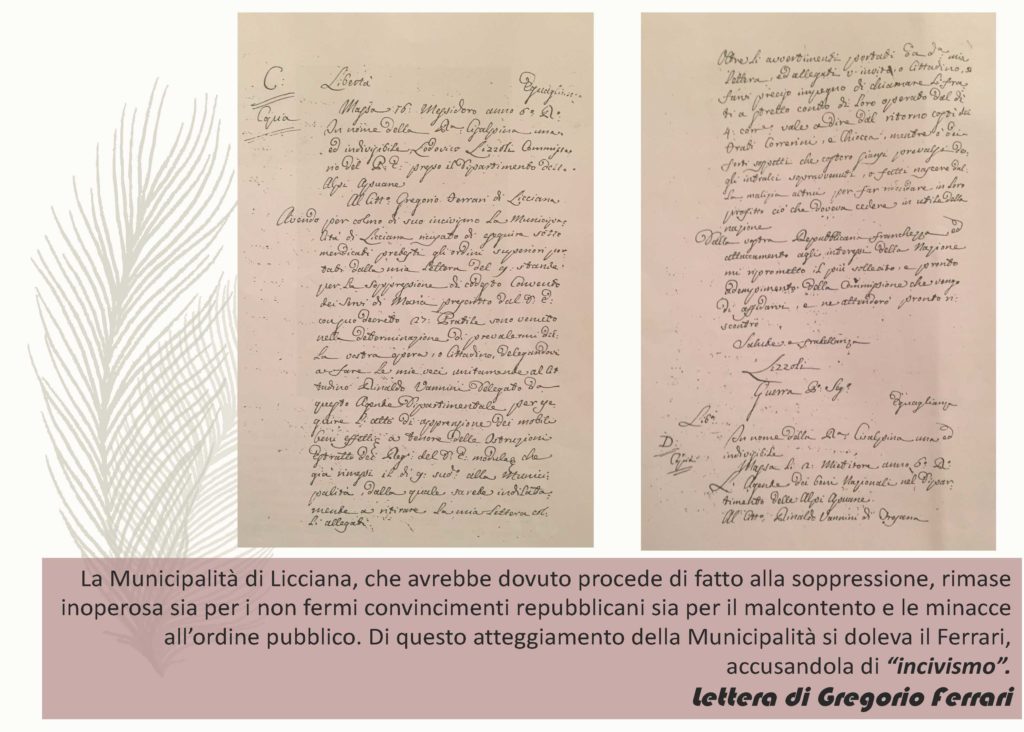 C:
Libertà
Eguaglian.
Copia
Massa 16: Messidoro anno 6° R°
In nome della R.ca Cisalpina una
ed indivisibile Lodovico Lizzoli Commissa
rio del P: E: presso il Dipartimento delle
Alpi Apuane
Al Citt.o Gregorio Ferrari di Licciana
Avendo per colmo di suo incivismo la Municipa
lità di Licciana ricusato di eseguire sotto
mendicati pretesti gli ordini superiori por
tati dalla mia Lettera del 9. stande
per la soppressione di codesto Convento
dei Servi di Maria prescritto dal D. E:
con suo decreto 27: Pratile sono venuto
nella determinazione di prevalermi del
la vostra opera, o Cittadino, delegandovi
a fare le mie veci unitamente al Cit
tadino Rinaldo Vannini Delegato da
questo Agente Dipartimentale per ese
guire li atti di apprensione dei mobili
beni effetti a tenore delle Istruzioni
Estratto dei Reg: del D: E: modula, che
già rimessi il dì 9: sud.o alla Munici
palità, dalla quale sarete indilata
mente a ritirare la mia Lettera col
li allegati
Oltre li avvertimenti portati da d.a mia
Lettera, ed allegati v'invito, o Cittadino, a
farvi preciso impegno di chiamare li Fra
ti a stretto conto di Loro operato dal dì
4: corr.e vale a dire dal ritorno costì dei
Frati Correnini, e Chiocca, mentre ò dei
forti sospetti che costoro siansi prevalsi de
gli intralci sopravvenuti, o fatti nascere dal
la malizia altrui per far in Loro
profitto ciò che doveva cedere in utile della
nazione
Dalla vostra Repubblicana franchezza ed
attaccamento agli interessi della Nazione
mi riprometto il più sollecito, e pronto
adempimento della Commissione che vengo
di affidarvi, e ne attenderò pronto ri
scontro
Salute e fratellanza
Lizzoli
Guerra P. Seg.o
Lib.a
Eguaglianza
D.
Copia
In nome della R.ca Cisalpina una ed
indivisibile
Massa li 2: Mietitore anno 6° R°
L'Agente dei beni Nazionali nel Dipar
timento delle Alpi Apuane
Al Citt.o Rinaldo Vannini di
La Municipalità di Licciana, che avrebbe dovuto procede di fatto alla soppressione, rimase
inoperosa sia per i non fermi convincimenti repubblicani sia per il malcontento e le minacce
all’ordine pubblico. Di questo atteggiamento della Municipalità si doleva il Ferrari,
accusandola di “incivismo”.
Lettera di Gregorio Ferrari